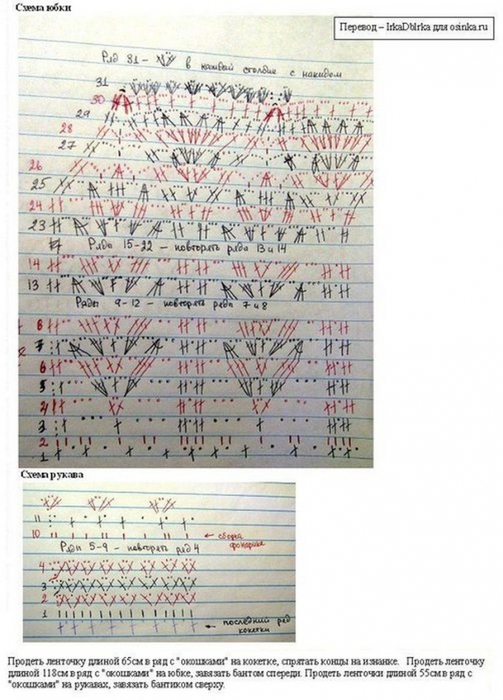 Схема юбки
Перевод – IrkaDbIrka для osinka.ru
Ряд 31 – в каждый столбик с накидом
31
30
29
28
27
26
25
24
23
Ряды 15-22 – повторять ряды 13 и 14
14
13
Ряды 9-12 – повторять ряды 7 и 8
8
7
6
5
4
3
2
1
Схема рукава
11
10 сборка фонарика
Ряды 5-9 – повторять ряд 4
4
3
2
1
последний ряд
кокетки
Продеть ленточку длиной 65см в ряд с "окошками" на кокетке, спрятать концы на изнанке. Продеть ленточку
длиной 118см в ряд с "окошками" на юбке, завязать бантом спереди. Продеть ленточки длиной 55см в ряд с
"окошками" на рукавах, завязать бантиком сверху.